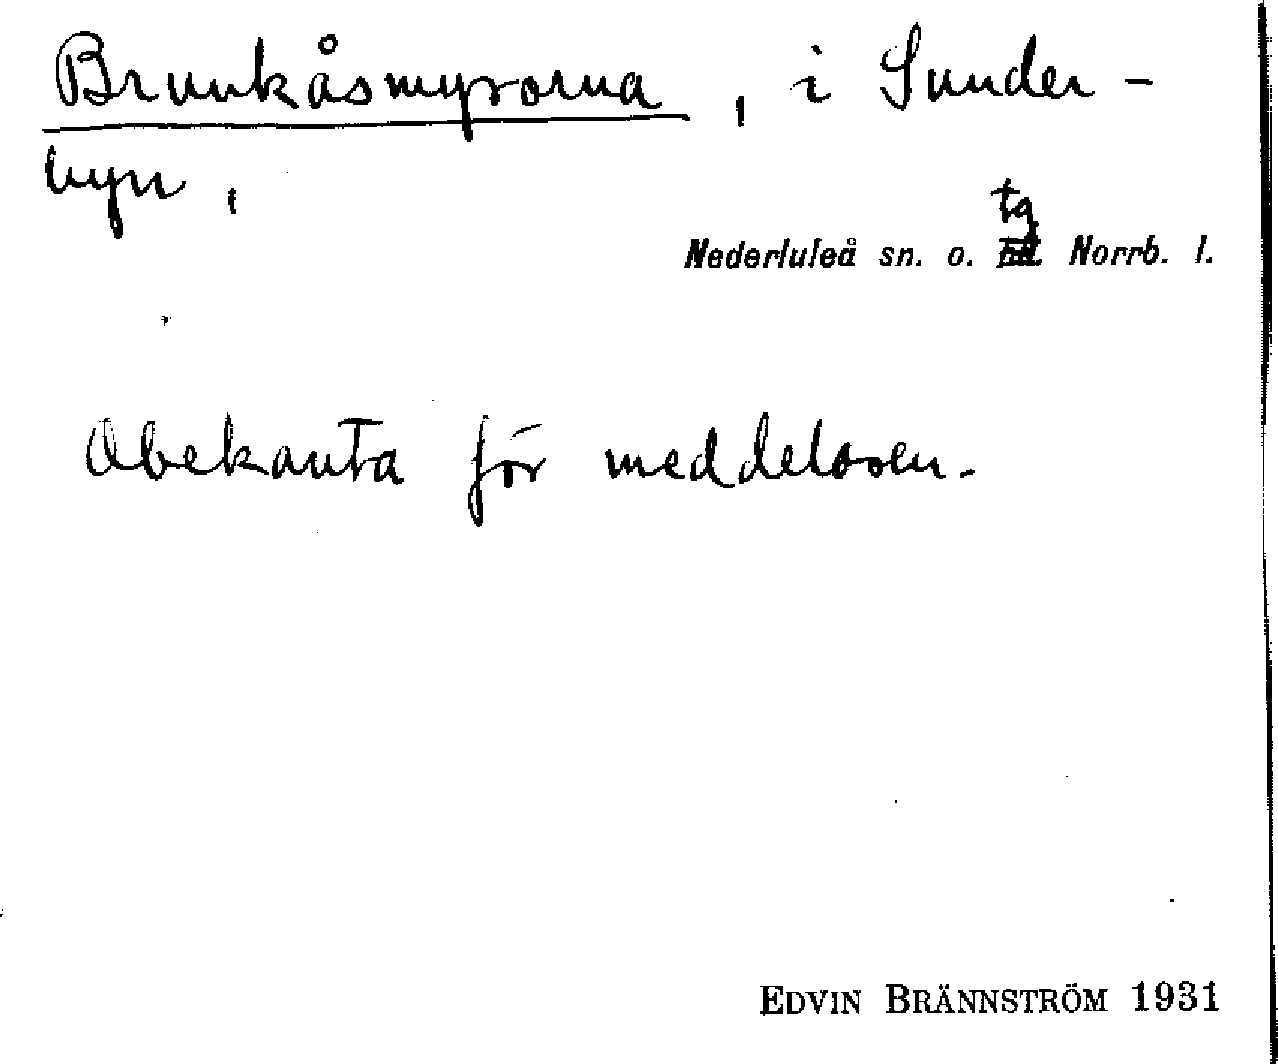 Brunkåsmyrorna, i Sunder-
byn,
tg
Nederluleå sn. o. Norrb. l.
Obekanta för meddelaren.
EDVIN BRÄNNSTRÖM 1931